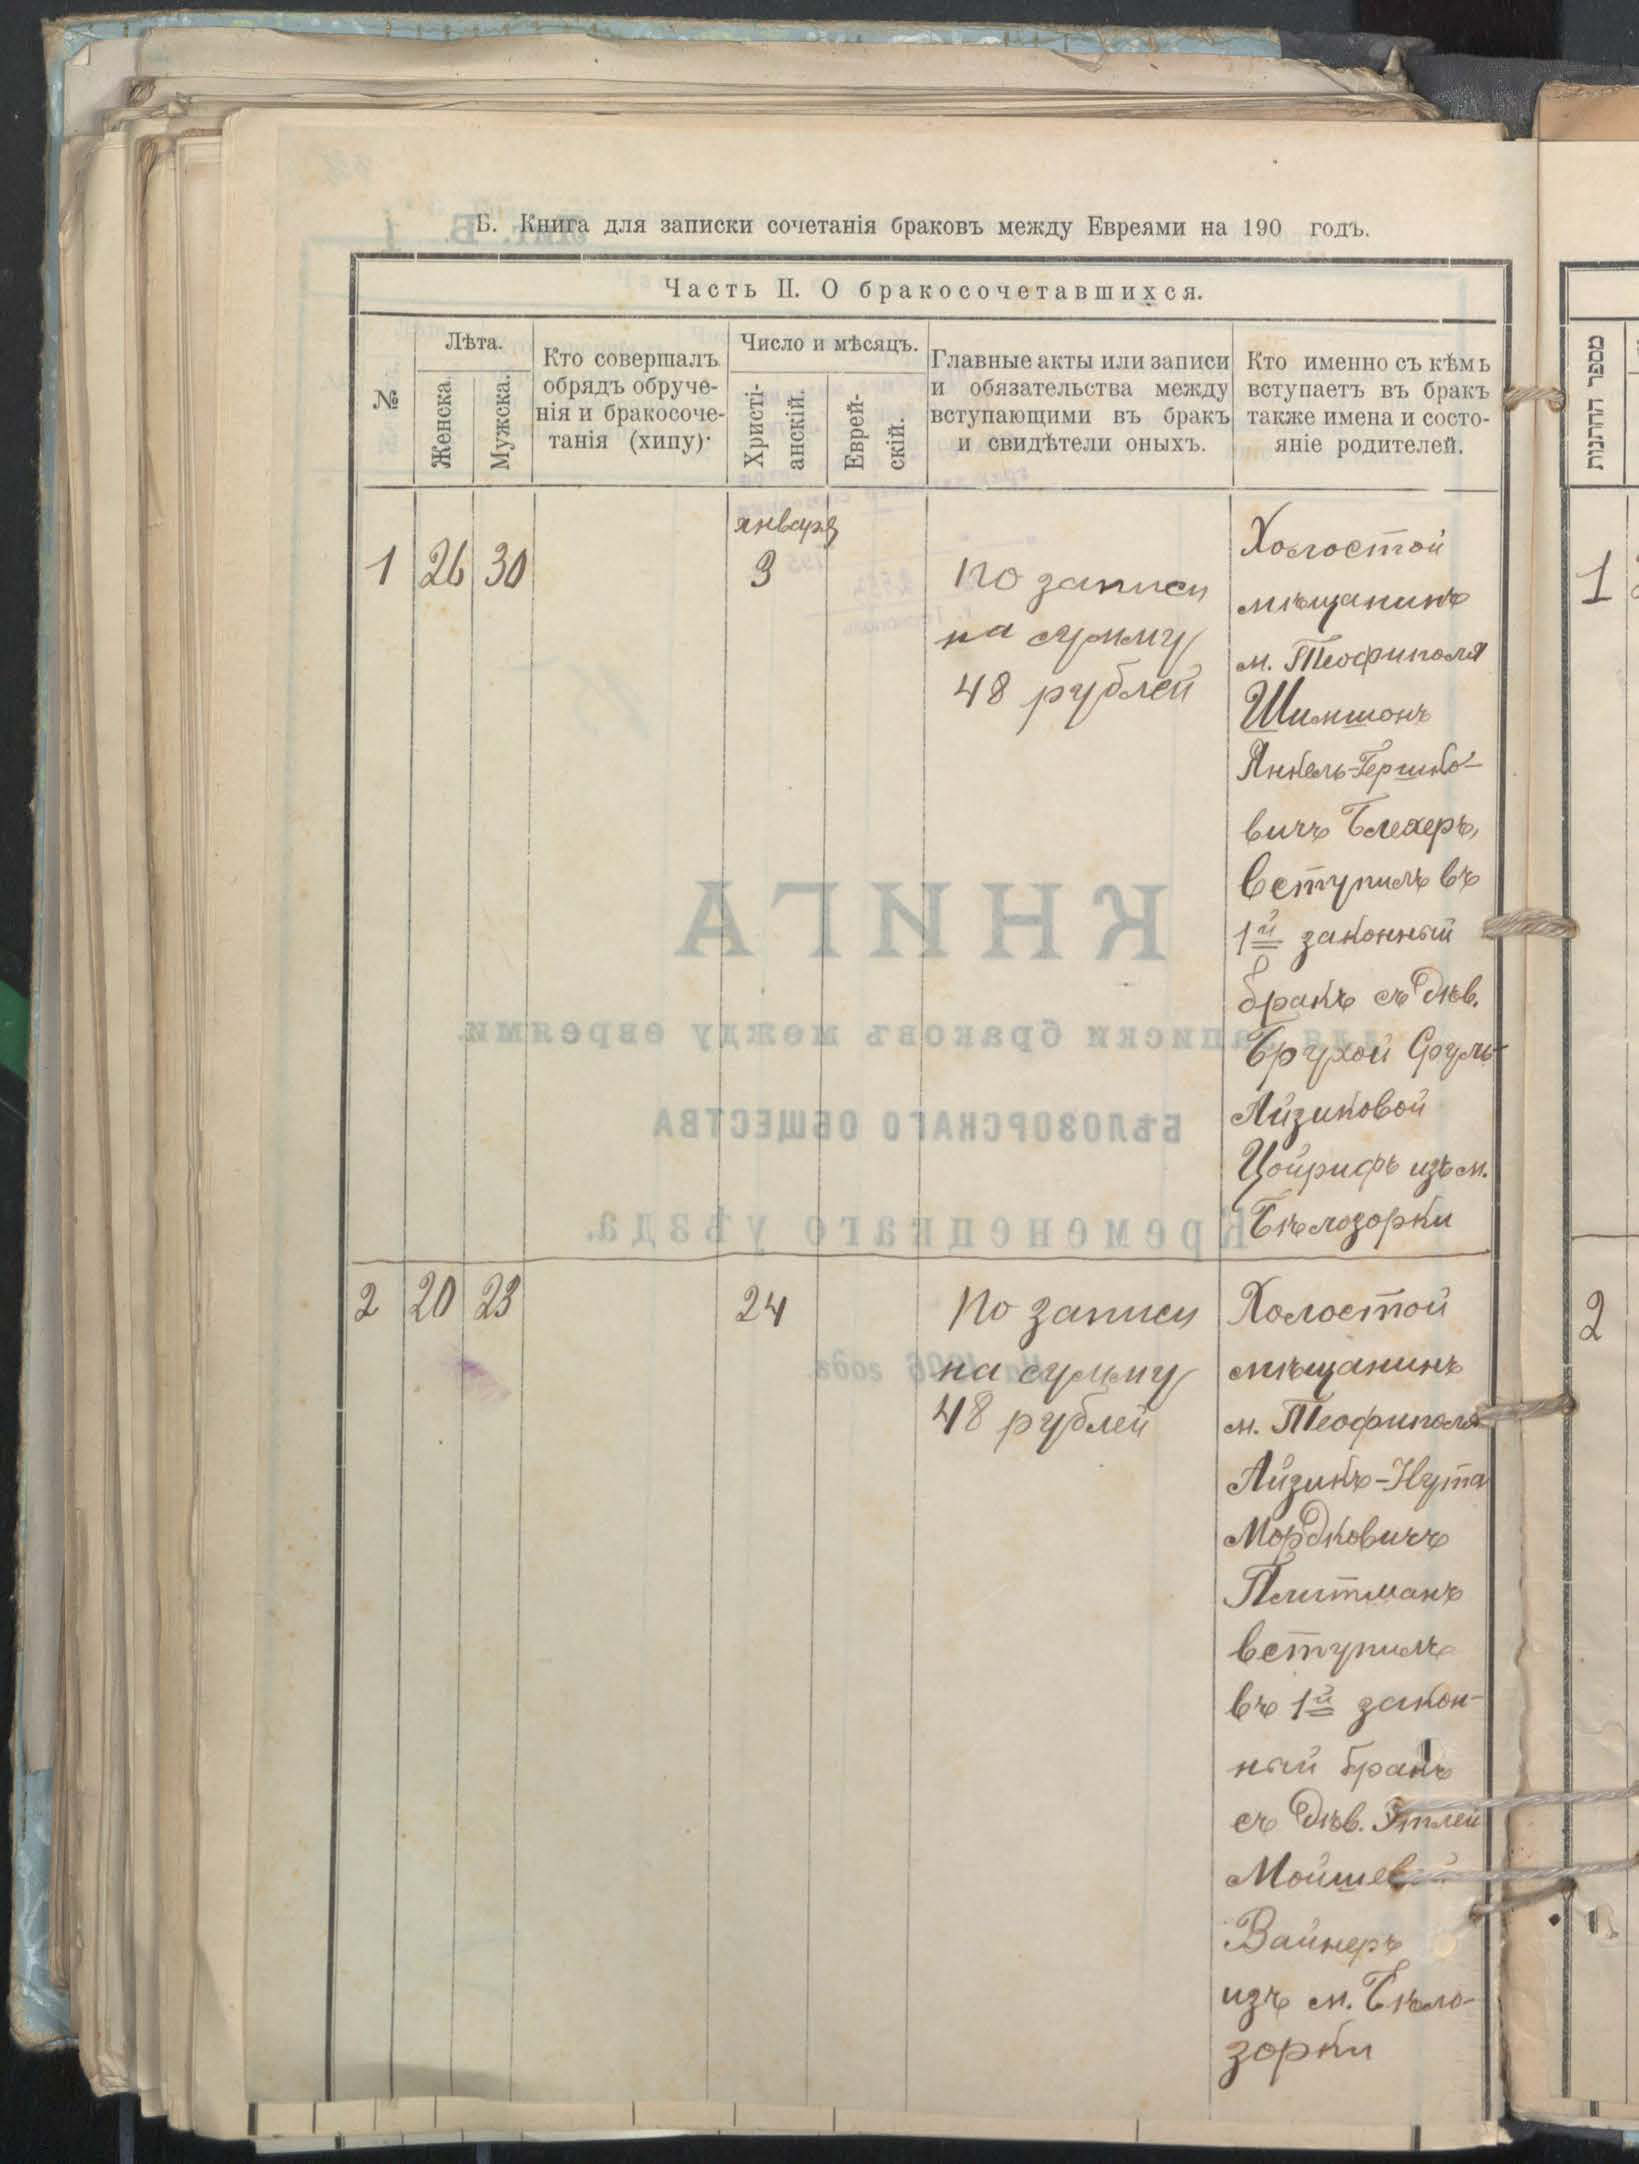 Б. Книга для записки сочетанія браковъ между Евреями на 190 годъ.
Часть II. О бракосочетавшихся.
№
Лѣта.
Женска.
Мужска.
Кто совершалъ
обрядъ обруче-
нія и бракосоче-
танія (хипу).
Число и мѣсяцъ.
Христі-
анскій.
Еврей-
скій.
Главные акты или записи
и обязательства между
вступающими въ бракъ
и свидѣтели оныхъ.
Кто именно съ кѣмъ
вступаетъ въ бракъ
также имена и состо-
яніе родителей.
מספר החתנות
1 26 30
января
3
По записи
на сумму
48 рублей
Холостой
мѣщанинъ
м. Теофиполя
Шимшонъ
Янкель-Гершко-
вичъ Блехеръ,
вступилъ въ
1й законный
бракъ съ дѣв.
Брухой Сруль-
Айзиковой
Цойрифъ изъ м.
Бѣлозорки
1
2 20 23
24
По записи
на сумму
48 рублей
Холостой
мѣщанинъ
м. Теофиполя
Айзикъ-Нута
Мордковичъ
Плитманъ
вступилъ
въ 1й закон-
ный бракъ
съ дѣв. Этлей
Мойшев
Вайнеръ
изъ м. Бѣло-
зорки
2
КНИГА
для записки браковъ между евреями
БѢЛОЗОРСКАГО ОБЩЕСТВА
Кременецкаго уѣзда.
1906 года